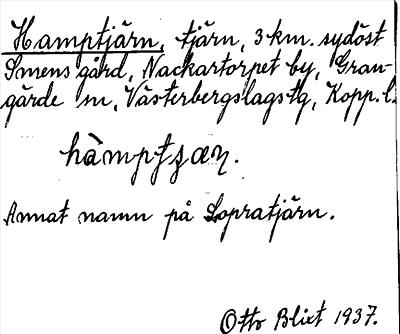 Hamptjärn, tjärn, 3 km. sydöst
Smens gård, Nackartorpet by, Gran-
gärde sn, Västerbergslags tg, Kopp. l.
hàmptʂæɳ.
Annat namn på Lopratjärn.
Otto Blixt 1937.